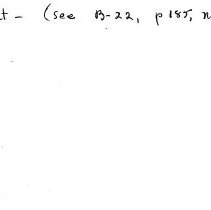 t - (see B-22, p 185, n